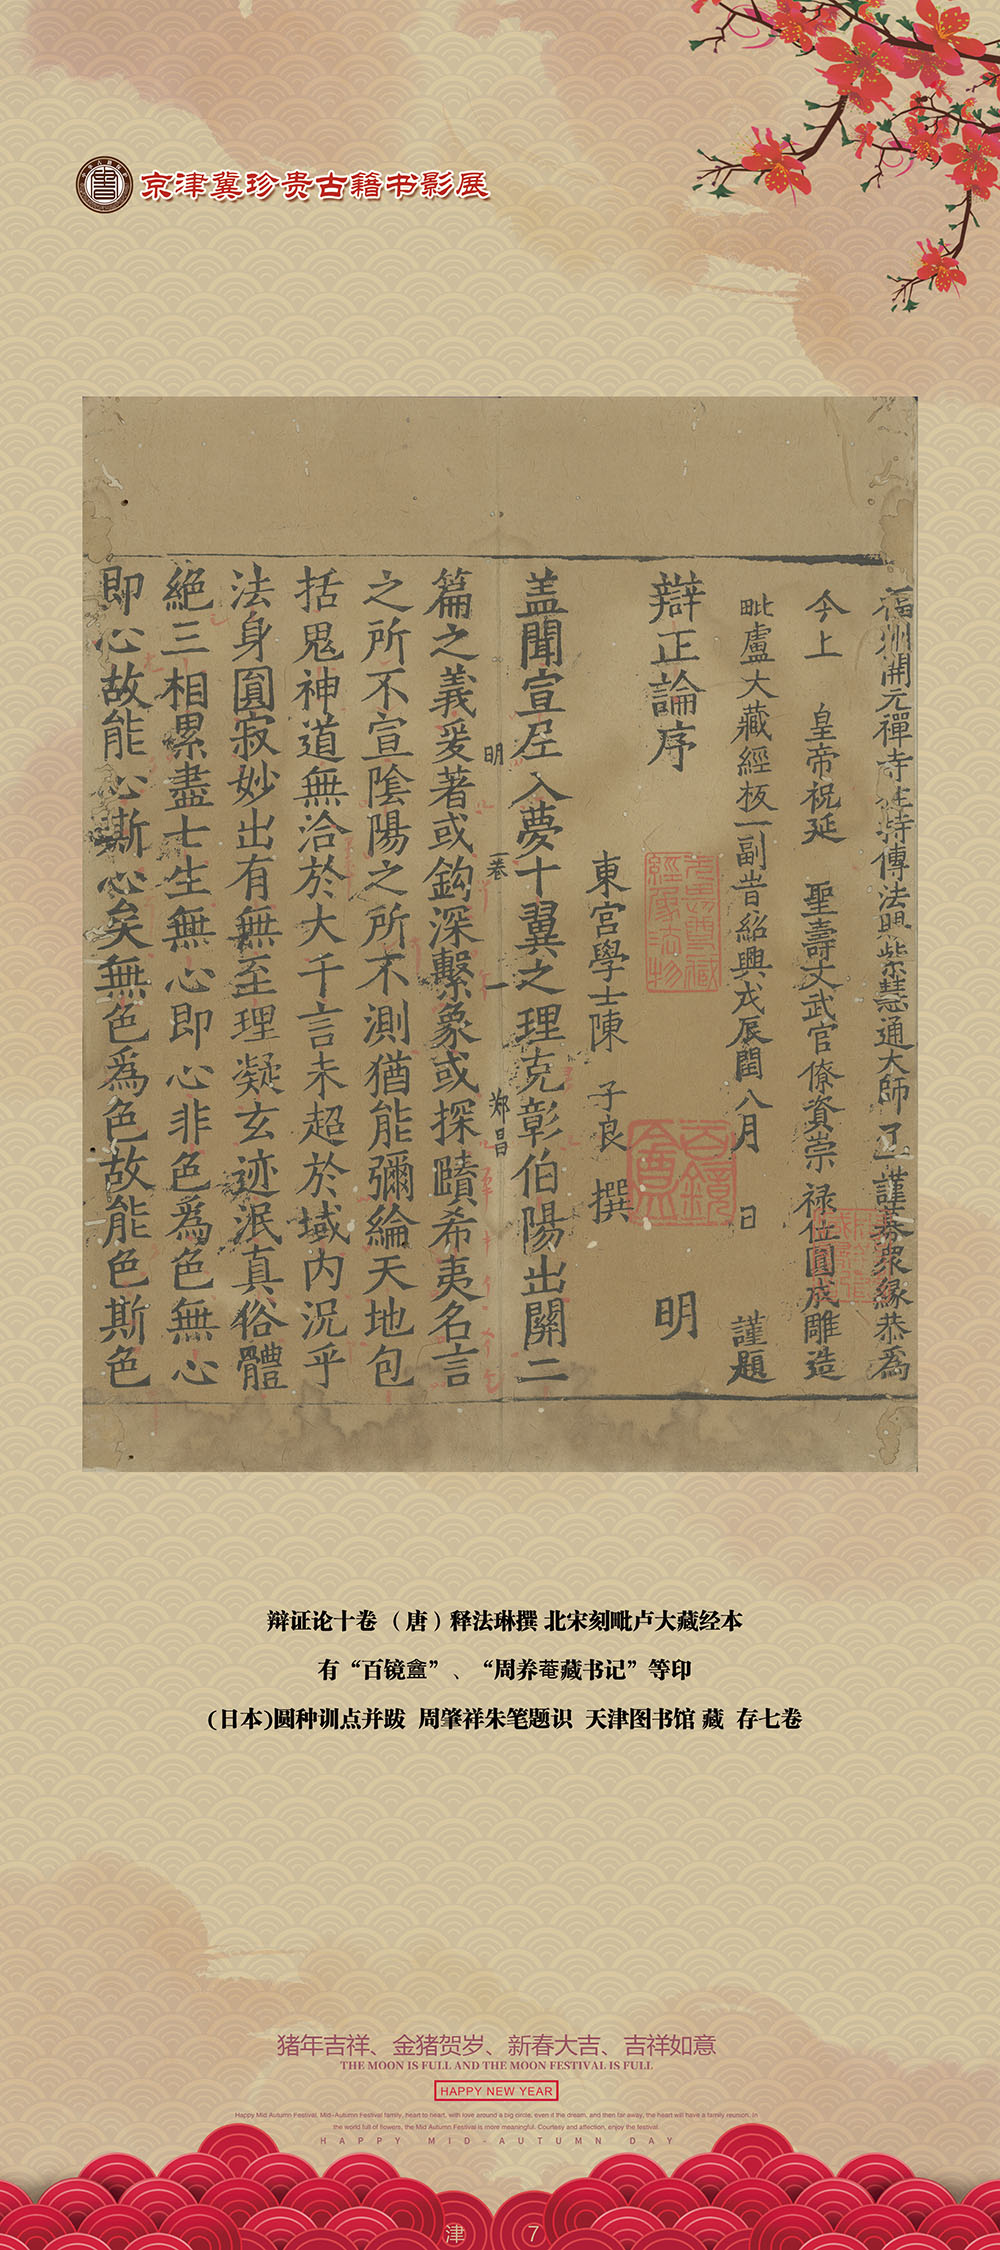 京津冀珍贵古籍书影展
福州開元禪寺住持傳法賜紫慧通大師了一謹募衆緣恭爲
今上 皇帝祝延 聖壽文武官僚資崇 祿位圓成雕造
毗盧大藏經板一副旹紹興戊辰閏八月 日 謹題
辯正論序 明
東宮學士陳 子良 撰
盖聞宣尼入夢十翼之理克彰伯陽出關二
明 一卷 一 郑昌
篇之義爰著或鈎深繫象或探賾希夷名言
之所不宣陰陽之所不測猶能彌綸天地包
括鬼神道無洽於大千言未超於域内況乎
法身圓寂妙出有無至理凝玄迹泯真俗體
絶三相累盡七生無心即心非色爲色無心
即心故能心斯心矣無色爲色故能色斯色
百鏡盦
辩证论十卷 （唐）释法琳撰 北宋刻毗卢大藏经本
有“百镜盦”、“周养菴藏书记”等印
(日本)圆种训点并跋 周肇祥朱笔题识 天津图书馆 藏 存七卷
猪年吉祥、金猪贺岁、新春大吉、吉祥如意
THE MOON IS FULL AND THE MOON FESTIVAL IS FULL
HAPPY NEW YEAR
Happy Mid Autumn Festival, Mid-Autumn Festival family, heart to heart, with love around a big circle, even if the dream, and then far away, the heart will have a family reunion. In
the world full of flowers, the Mid Autumn Festival is more meaningful. Courtesy and affection, enjoy the festival.
HAPPY MID-AUTUMN DAY
津 7